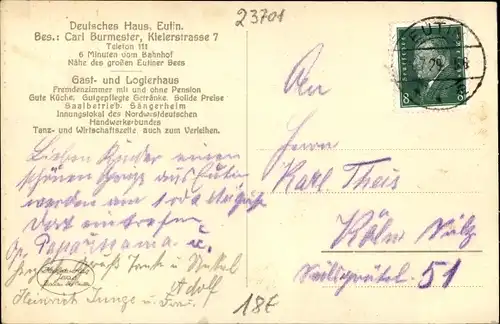 23701
Deutsches Haus, Eutin.
Bes.: Carl Burmester, Kielerstrasse 7
Telefon 111
6 Minuten vom Bahnhof
Nähe des großen Eutiner Sees
Gast- und Logierhaus
Fremdenzimmer mit und ohne Pension
Gute Küche. Gutgepflegte Getränke. Solide Preise
Saalbetrieb. Sängerheim
Innungslokal des Nordwestdeutschen
Handwerksbundes
Tanz- und Wirtschaftszelte auch zum Verleihen.
Lieben Kinder einen
schönen Gruß aus Eutin
werden am
dort eintreffen
Papa u. Mama u.
Gruß Tante u Onkel
Adolf
Heinrich Junge u. Frau.
18€
EUTIN
8
An
Herrn
Karl Theis
Köln Sülz
51